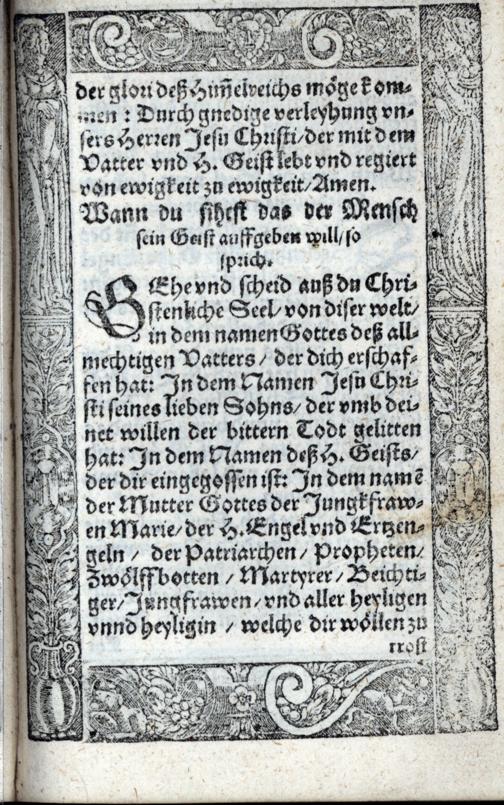 der glori deß Him̄elreichs möge kom-
men : Durch gnedige verleyhung vn-
sers Herren Jesu Christi/der mit dem
Vatter vnd H. Geist lebt vnd regiert
von ewigkeit zu ewigkeit/Amen.
Wann du sihest das der Mensch
sein Geist auffgeben will/so
sprich.
GEhe vnd scheid auß du Chri-
stenliche Seel/von diser welt/
in dem namen Gottes deß all-
mechtigen Vatters/ der dich erschaf-
fen hat: In dem Namen Jesu Chri-
sti seines lieben Sohns/ der vmb dei-
net willen der bittern Todt gelitten
hat: In dem Namen deß H. Geists/
der dir eingegossen ist: In dem namē
der Mutter Gottes der Jungkfraw-
en Marie/der H. Engel vnd Ertzen-
geln / der Patriarchen / Propheten/
Zwölffbotten / Martyrer / Beichti-
ger/Jungfrawen/vnd aller heyligen
vnnd heyligin / welche dir wöllen zu
trost